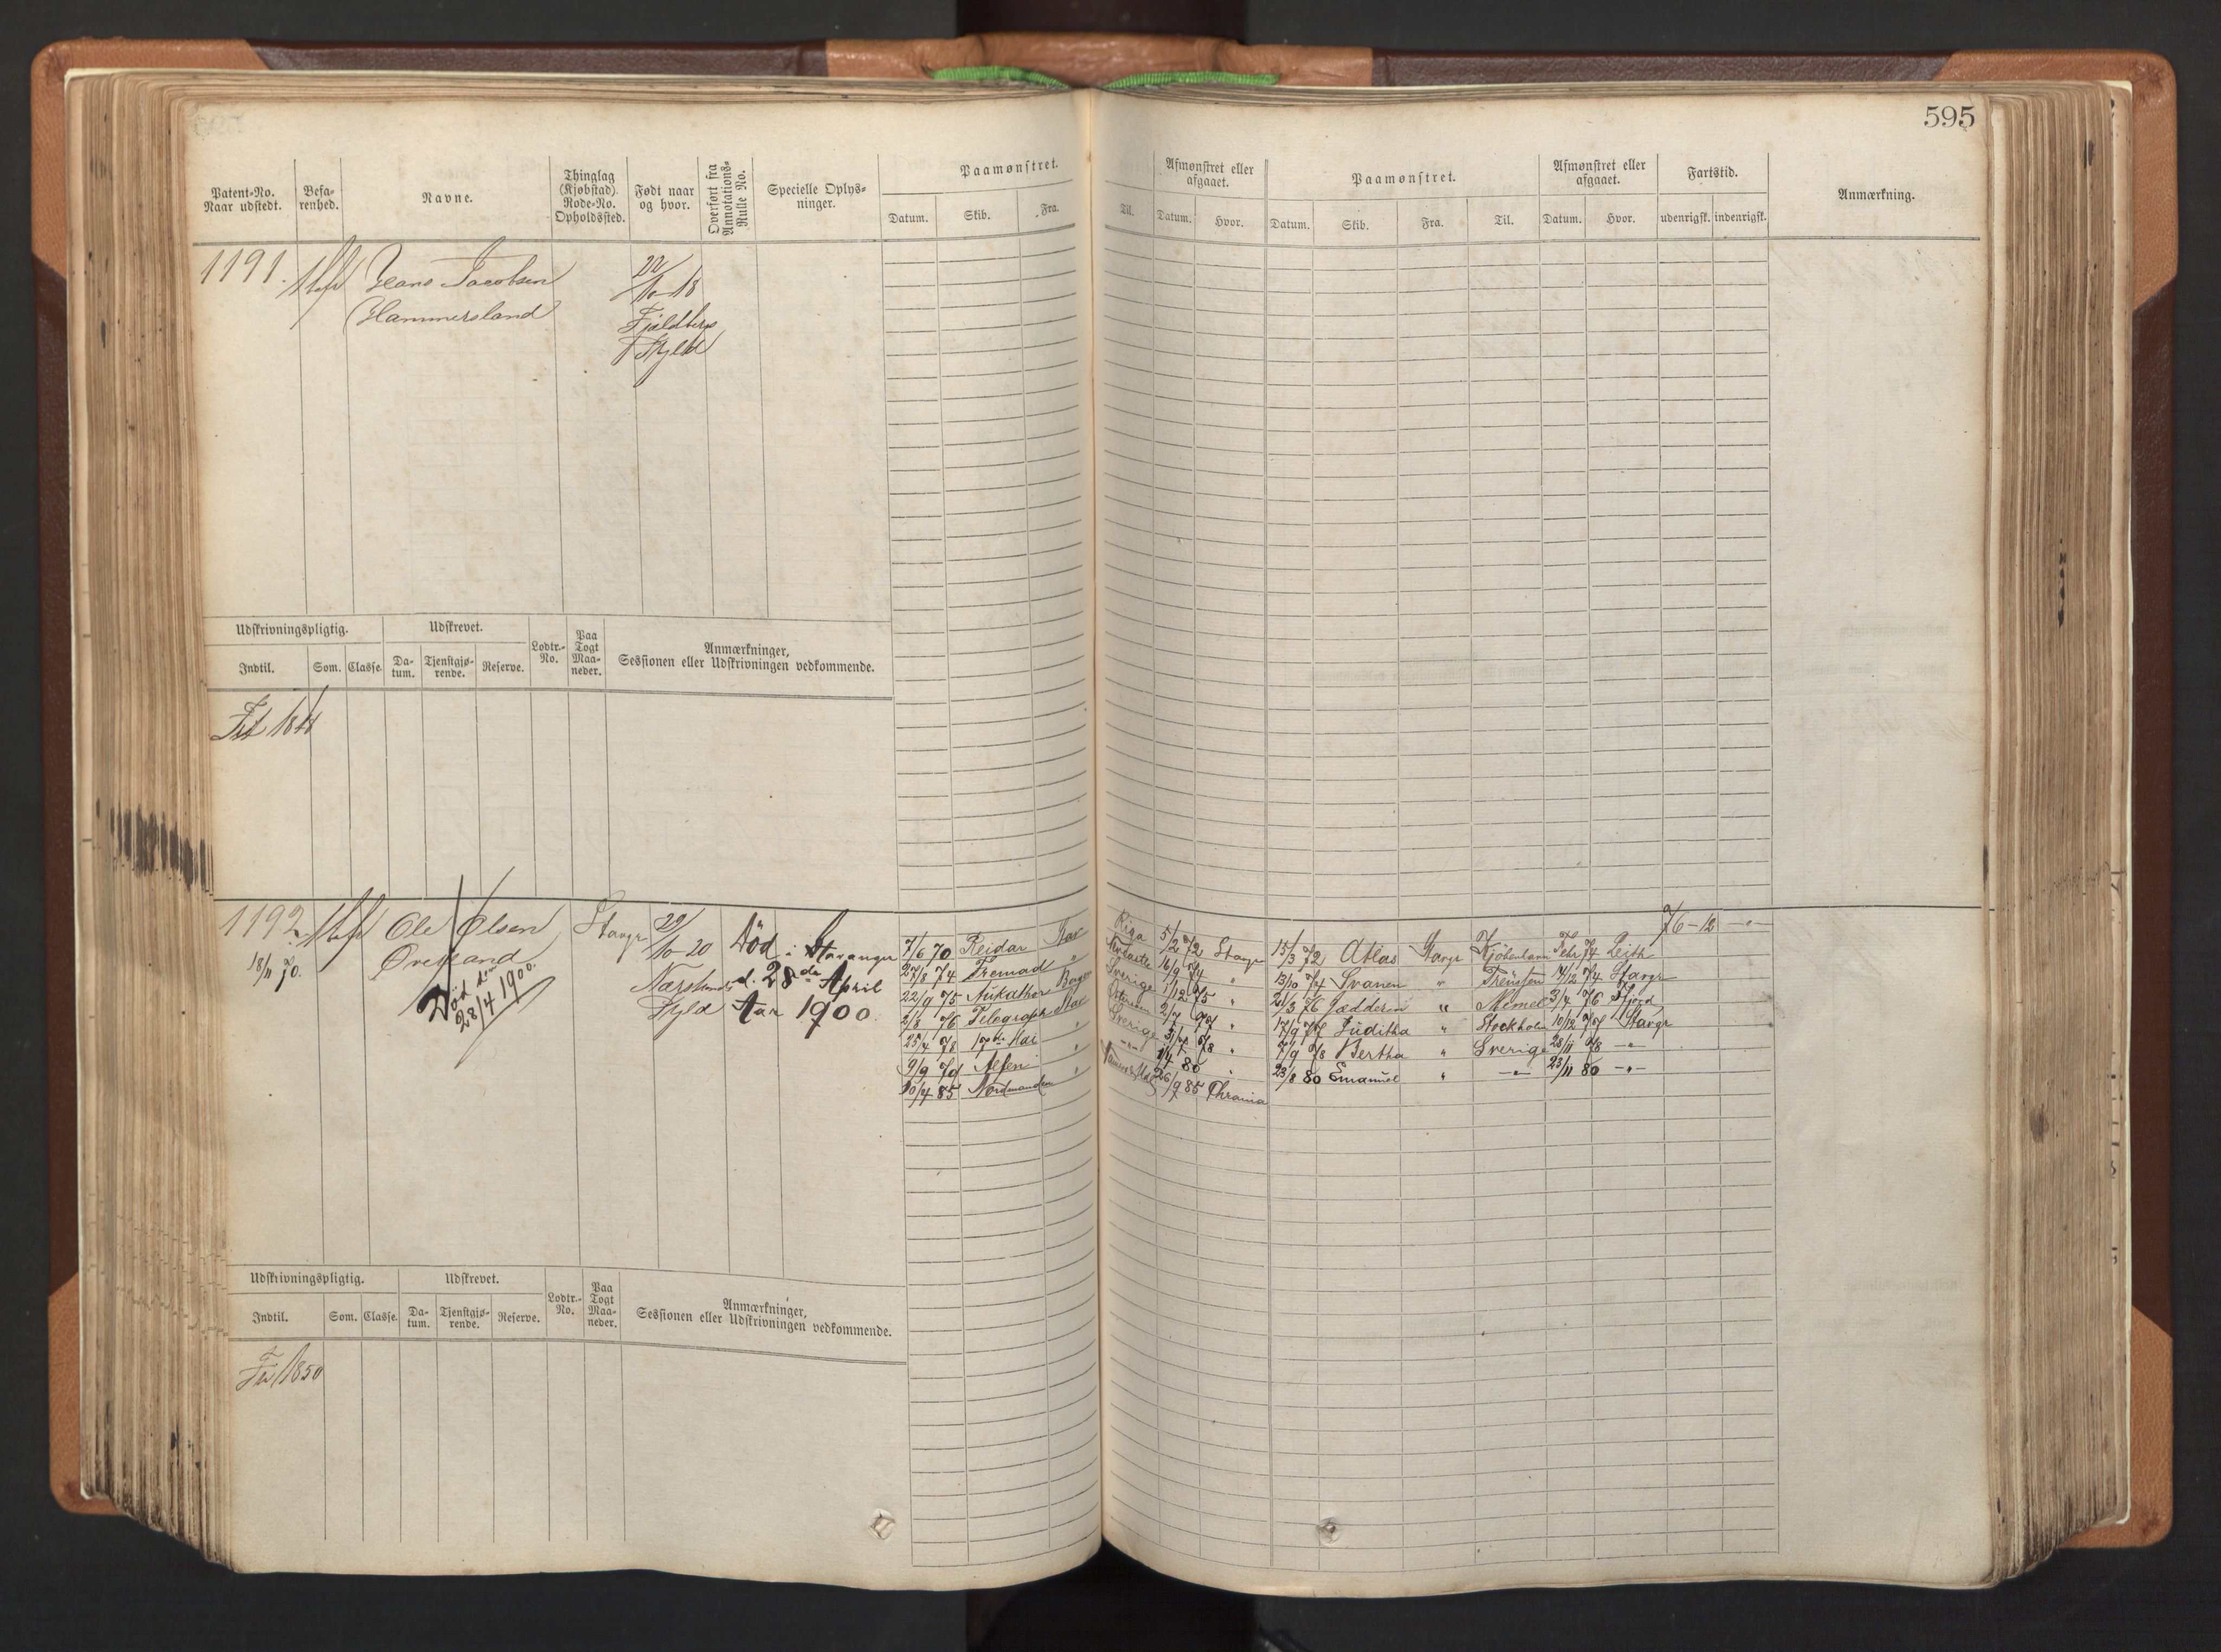 595
Patent-No. Naar udstedt.
Befa-renhed.
Navne.
Thinglag (Kjøbstad) Rode-No. Opholdssted.
Født naar og hvor.
Overført fra Annotations-Rulle No.
Specielle Oplys-ninger.
Paamønstret.
Datum. Skib. Fra. Til.
Afmønstret eller afgaaet.
Datum. Hvor.
Paamønstret.
Datum. Skib. Fra. Til.
Afmønstret eller afgaaet.
Datum. Hvor.
Fartstid.
udenrigsk. indenrigsk.
Anmærkning.
1191. Hans Jacobsen 22/10-18
Hammersland Fjeldbergs
Skjeld
Udskrivningspligtig. Udskrevet. Lodtr.-No. Paa Togt Maa-neder. Anmærkninger, Sessionen eller Udskrivningen vedkommende.
Indtil. Som. Classe. Da-tum. Tjenstgjø-rende. Reserve.
1192 Ole Olsen Stavgr 29/10-20 Død i Stavanger
18/11 70. Øvesland d. 28de April
Skjld Aar 1900.
Død den
28/4 1900.
76-12 -"-
7/6 70 Reidar Stav Riga 5/2 72 Stavgr 15/3 72 Atlas Stavgr Kjøbenhavn Febr 74 Leith
27/8 74 Fremad " 16/9 74 " 13/10 74 Svanen " 14/12 74 Stavgr
22/9 75 Sverige 1/12 75 " 21/3 76 Jædderen " Memel 3/4 76
2/8 76 Telegraph Stav 2/7 77 " 17/9 77 Juditha " Stockholm 10/12 77 Stavgr
25/4 78 17de Mai " Sverige 78 " 7/9 78 Bertha " Sverige 28/11 78 -"-
9/9 79 " -"- 1/4 80 " 23/8 80 Emanuel " -"- 23/11 80 -"-
30/4 85 Nordmanden 26/9 85
Udskrivningspligtig. Udskrevet. Lodtr.-No. Paa Togt Maa-neder. Anmærkninger, Sessionen eller Udskrivningen vedkommende.
Indtil. Som. Classe. Da-tum. Tjenstgjø-rende. Reserve.
1850